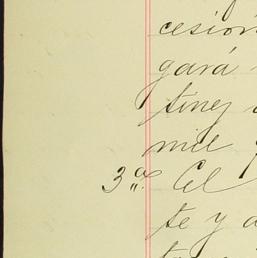 cesión
gará
tinez
mil
3ª. El
te y